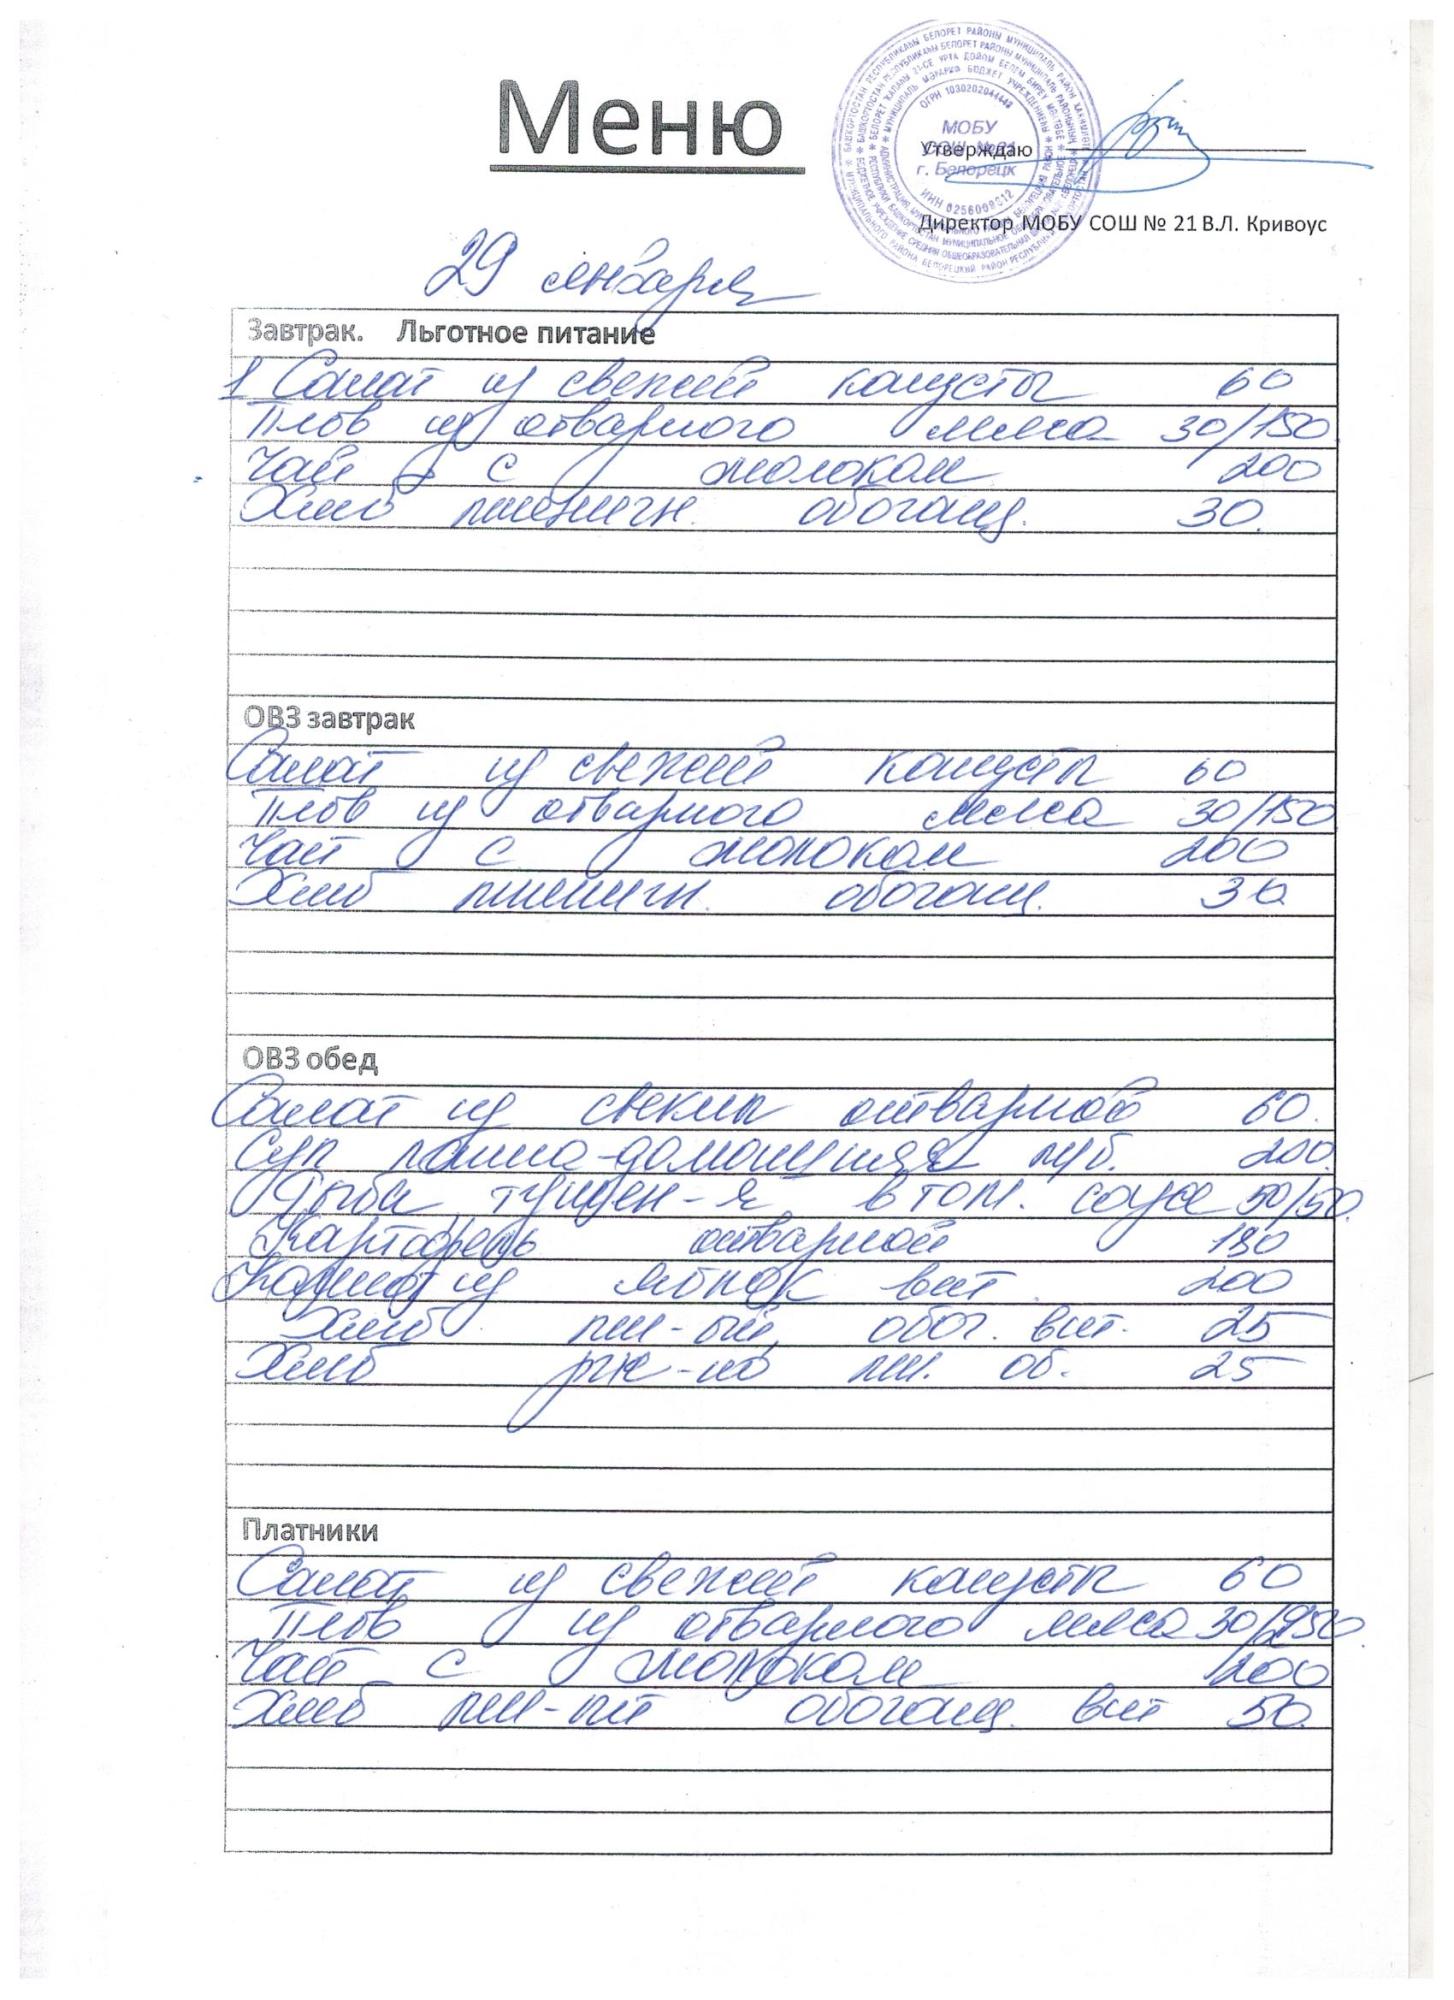 Меню
МОБУ
СОШ № 21
г. Белорецк
ОГРН 1030202044448
Утверждаю
Директор МОБУ СОШ № 21 В.Л. Кривоус
29 января
Завтрак. Льготное питание
1 Салат из свежей капусты 60
Плов из отварного мяса 30/150
Чай с молоком 200
Хлеб пшеничн. обогащ. 30.
ОВЗ завтрак
Салат из свежей капусты 60
Плов из отварного мяса 30/150
Чай с молоком 200
Хлеб пшеничн. обогащ. 30
ОВЗ обед
Салат из свеклы отварной 60.
Суп лапша-домашняя 200.
Рыба тушен-я в том. соусе 50/50.
Картофель отварной
Компот из яблок вит. 200
Хлеб пш-ый, обог. вит. 25
Хлеб рж-но пш. об. 25
Платники
Салат из свежей капусты 60
Плов из отварного мяса
Чай с молоком 200
Хлеб пш-ый обогащ. вит 50.